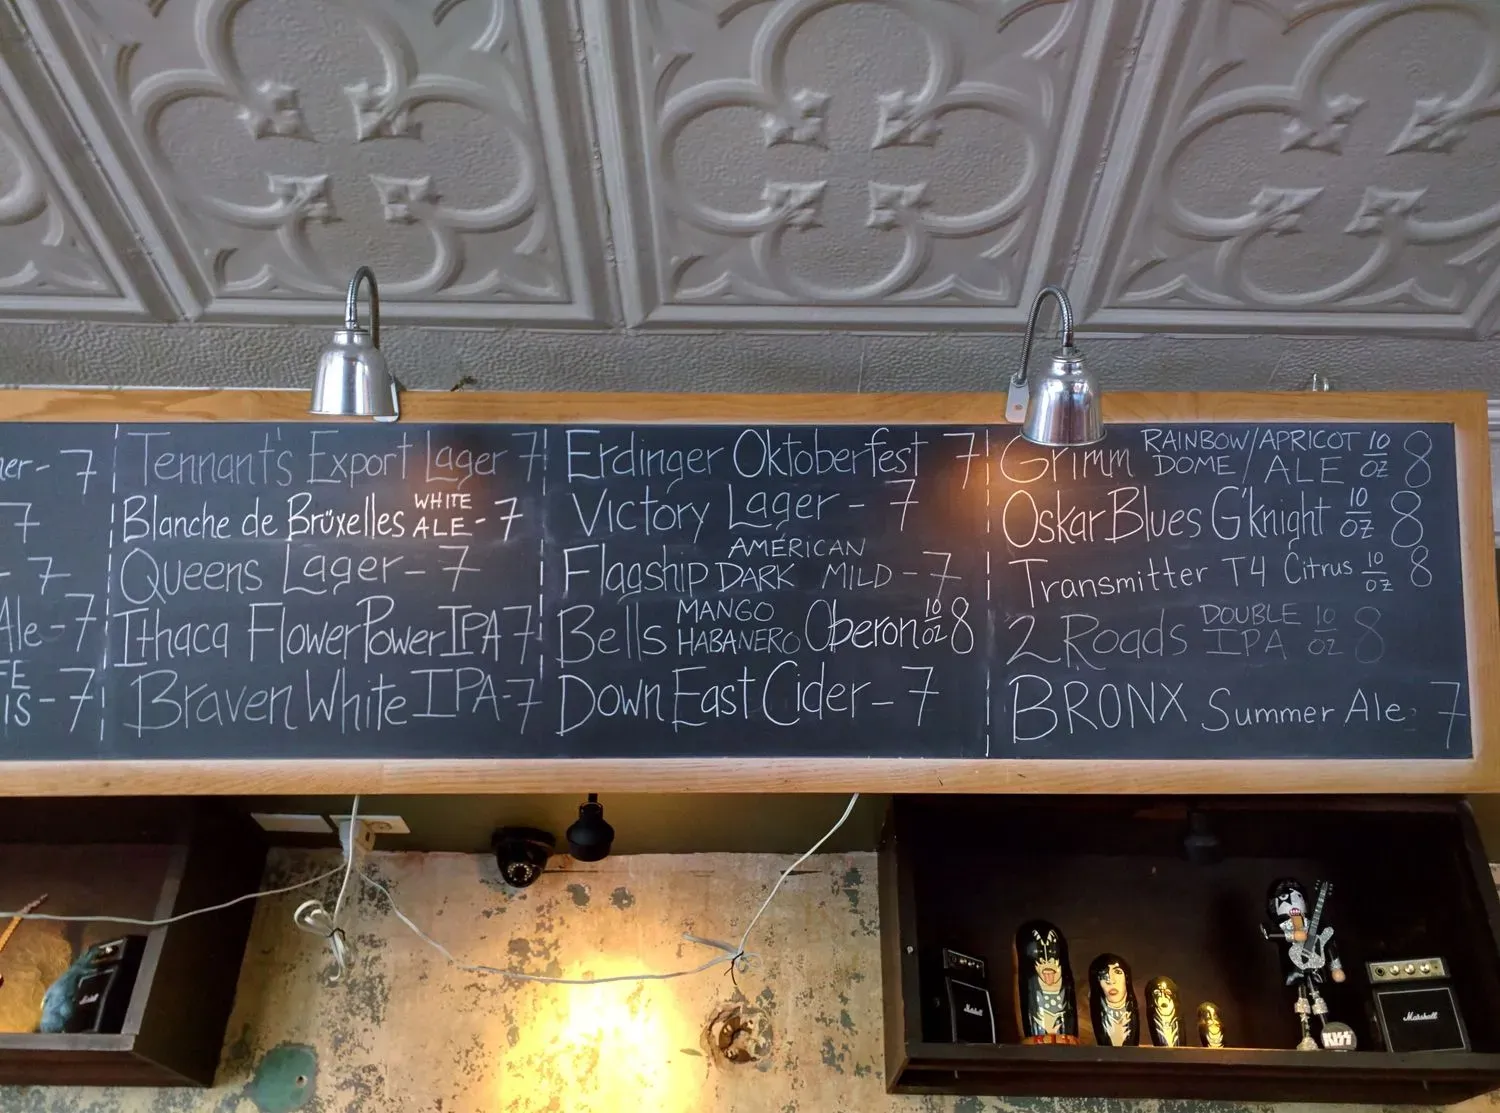 er - 7
7
- 7
Ale - 7
FE
IS - 7
Tennant's Export Lager 7
Blanche de Brüxelles WHITE ALE - 7
Queens Lager - 7
Ithaca FlowerPower IPA 7
Braven White IPA - 7
Erdinger Oktoberfest 7
Victory Lager - 7
Flagship AMERICAN DARK MILD - 7
Bells MANGO HABANERO Oberon 10 OZ 8
Down East Cider - 7
Grimm RAINBOW/APRICOT DOME/ALE 10 OZ 8
Oskar Blues G'Knight 10 OZ 8
Transmitter T4 Citrus 10 OZ 8
2 Roads DOUBLE IPA 10 OZ 8
BRONX Summer Ale 7
Marshall
Marshall
KISS
Marshall